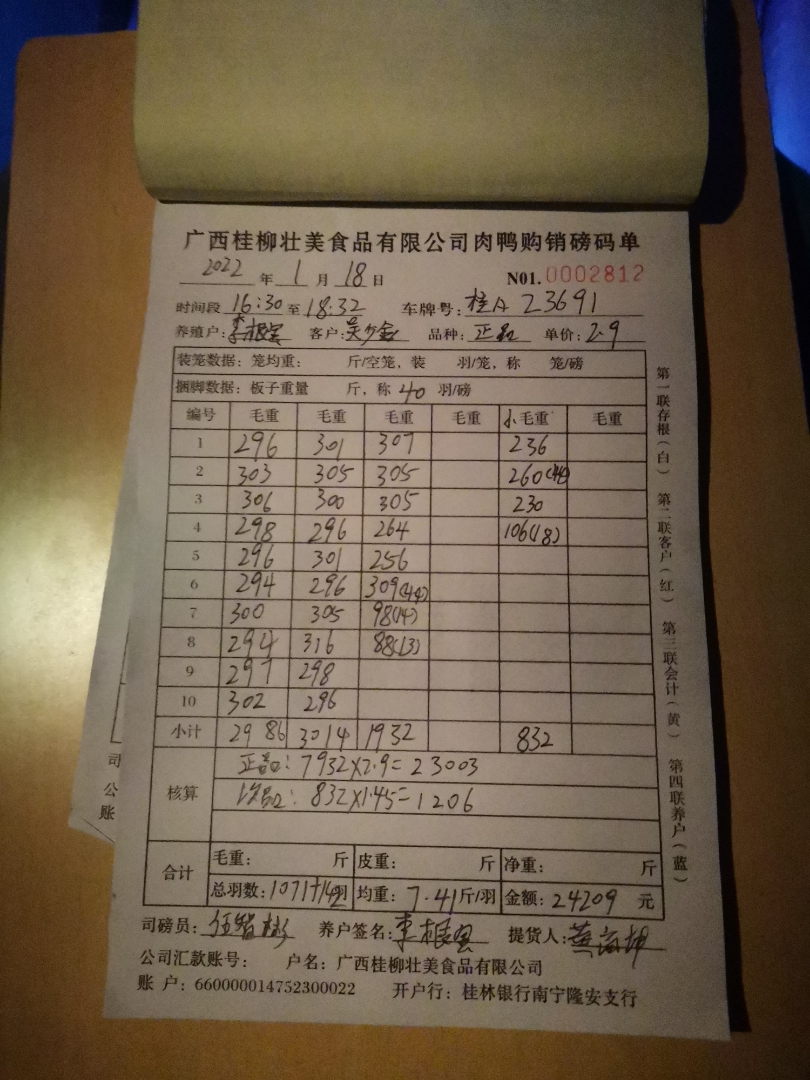 广西桂柳壮美食品有限公司肉鸭购销磅码单
2022 年 1 月 18 日 N01. 0002812
时间段 16:30 至 18:32 车牌号: 桂A 23691
养殖户: 李根宝 客户: 品种: 正品 单价: 2.9
装笼数据: 笼均重: 斤/空笼, 装 羽/笼, 称 笼/磅
捆脚数据: 板子重量 斤, 称 40 羽/磅
编号 毛重 毛重 毛重 毛重 小毛重 毛重
1 296 301 307 236
2 303 305 305 260(44)
3 306 300 305 230
4 298 296 264 106(18)
5 296 301 256
6 294 296 309(44)
7 300 305 98(14)
8 294 316 88(13)
9 297 298
10 302 296
小计 2986 3014 1932 832
核算 正品: 7932×2.9=23003
次品: 832×1.45=1206
合计 毛重: 斤 皮重: 斤 净重: 斤
总羽数: 1071+142羽 均重: 7.41斤/羽 金额: 24209 元
司磅员: 养户签名: 李根宝 提货人:
公司汇款账号: 户名: 广西桂柳壮美食品有限公司
账 户: 660000014752300022 开户行: 桂林银行南宁隆安支行
第一联存根(白) 第二联客户(红) 第三联会计(黄) 第四联养户(蓝)
司
公
账